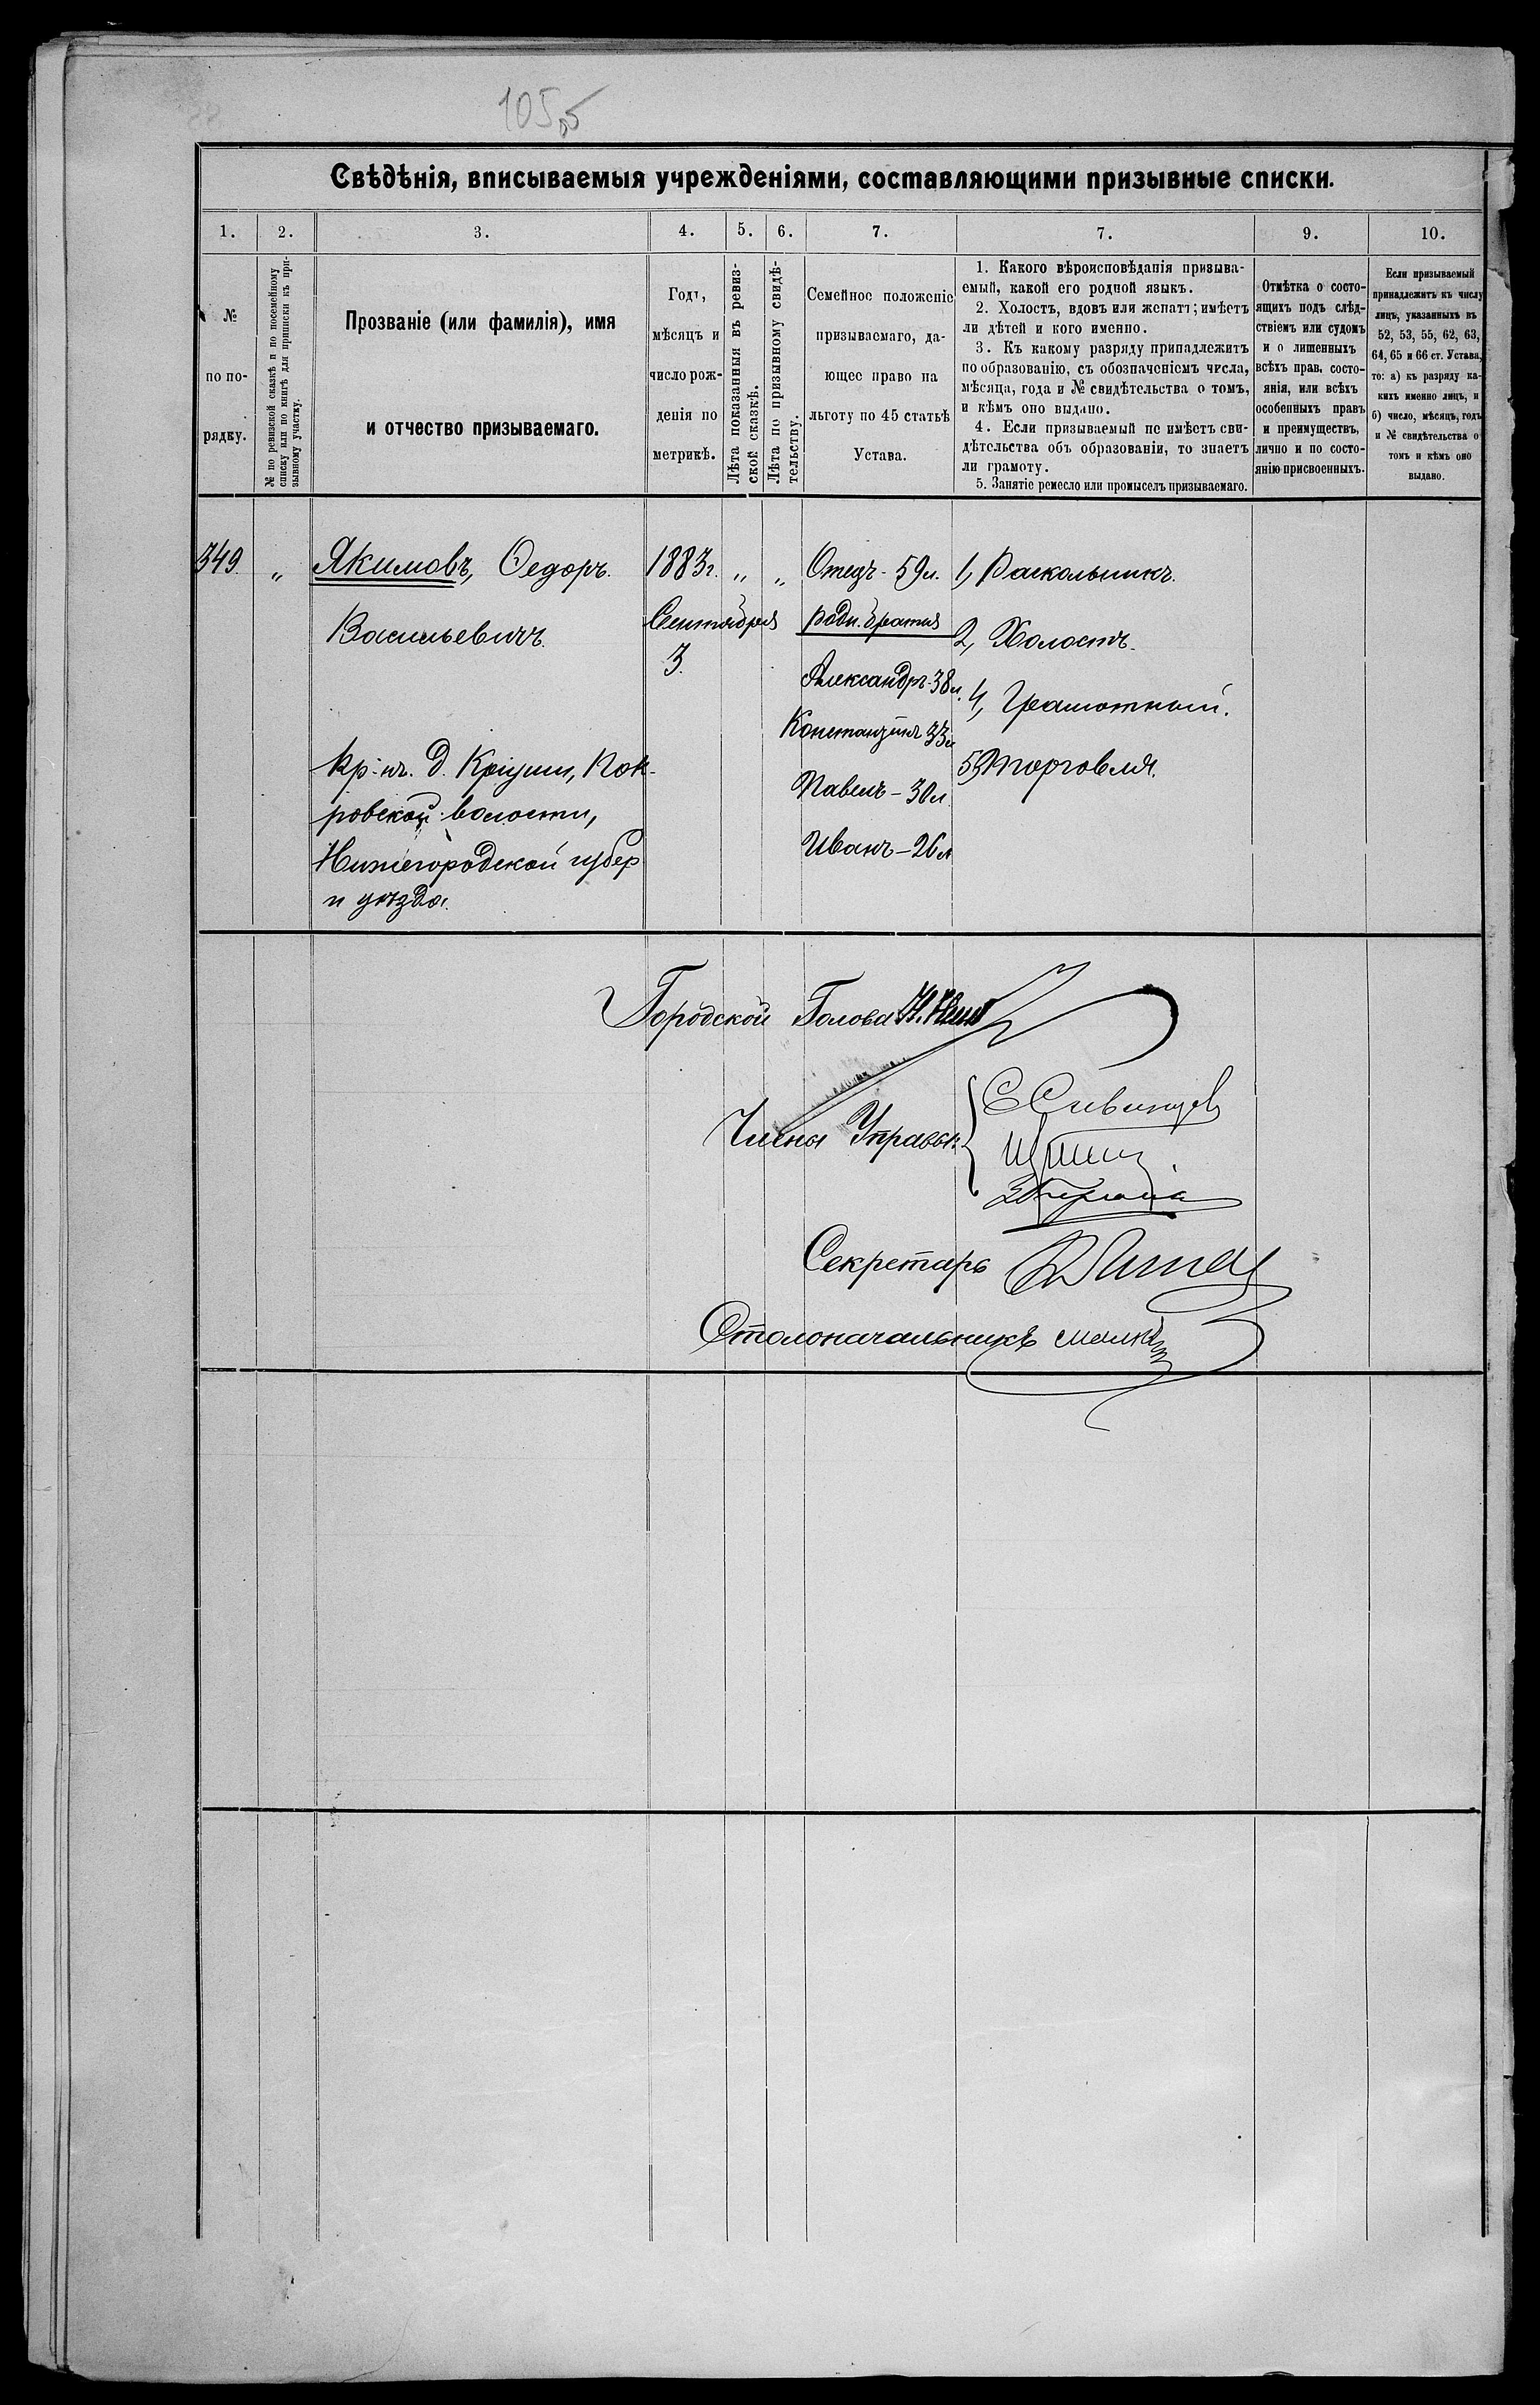 105 об
Свѣдѣнія, вписываемыя учрежденіями, составляющими призывные списки.
1.
2.
3.
4.
5.
6.
7.
7.
9.
10.
№
по по-
рядку.
№ по ревизской сказкѣ и по посемейному
списку или по книгѣ для приписки къ при-
зывному участку.
Прозваніе (или фамилія), имя
и отчество призываемаго.
Годъ,
мѣсяцъ и
число рож-
денія по
метрикѣ.
Лѣта показанныя въ ревиз-
ской сказкѣ.
Лѣта по призывному свидѣ-
тельству.
Семейное положеніе
призываемаго, да-
ющее право на
льготу по 45 статьѣ
Устава.
1. Какого вѣроисповѣданія призыва-
емый, какой его родной языкъ.
2. Холостъ, вдовъ или женатъ; имѣетъ
ли дѣтей и кого именно.
3. Къ какому разряду принадлежитъ
по образованію, съ обозначеніемъ числа,
мѣсяца, года и № свидѣтельства о томъ,
и кѣмъ оно выдано.
4. Если призываемый не имѣетъ сви-
дѣтельства объ образованіи, то знаетъ
ли грамоту.
5. Занятіе ремесло или промыселъ призываемаго.
Отмѣтка о состо-
ящихъ подъ слѣд-
ствіемъ или судомъ
и о лишенныхъ
всѣхъ прав. состо-
янія, или всѣхъ
особенныхъ правъ
и преимуществъ,
лично и по состо-
янію присвоенныхъ.
Если призываемый
принадлежитъ къ числу
лицъ, указанныхъ въ
52, 53, 55, 62, 63,
64, 65 и 66 ст. Устава,
то: а) къ разряду ка-
кихъ именно лицъ, и
б) число, мѣсяцъ, годъ
и № свидѣтельства о
томъ и кѣмъ оно
выдано.
349.
„
Якимовъ, Ѳедоръ
Васильевичъ.
кр-нъ. д. Кріуши, Пок-
ровской волости,
Нижегородской губер
и уѣзда.
1883г.
Сентября
3.
„
„
Отецъ - 59л.
родн. братья
Александръ - 38л.
Константинъ 33л
Павелъ - 30л
Иванъ - 26л
1, Раскольникъ.
2, Холостъ.
4, Грамотный.
5, Торговля.
Городской Голова
Члены Управы:
Секретарь
Столоначальникъ